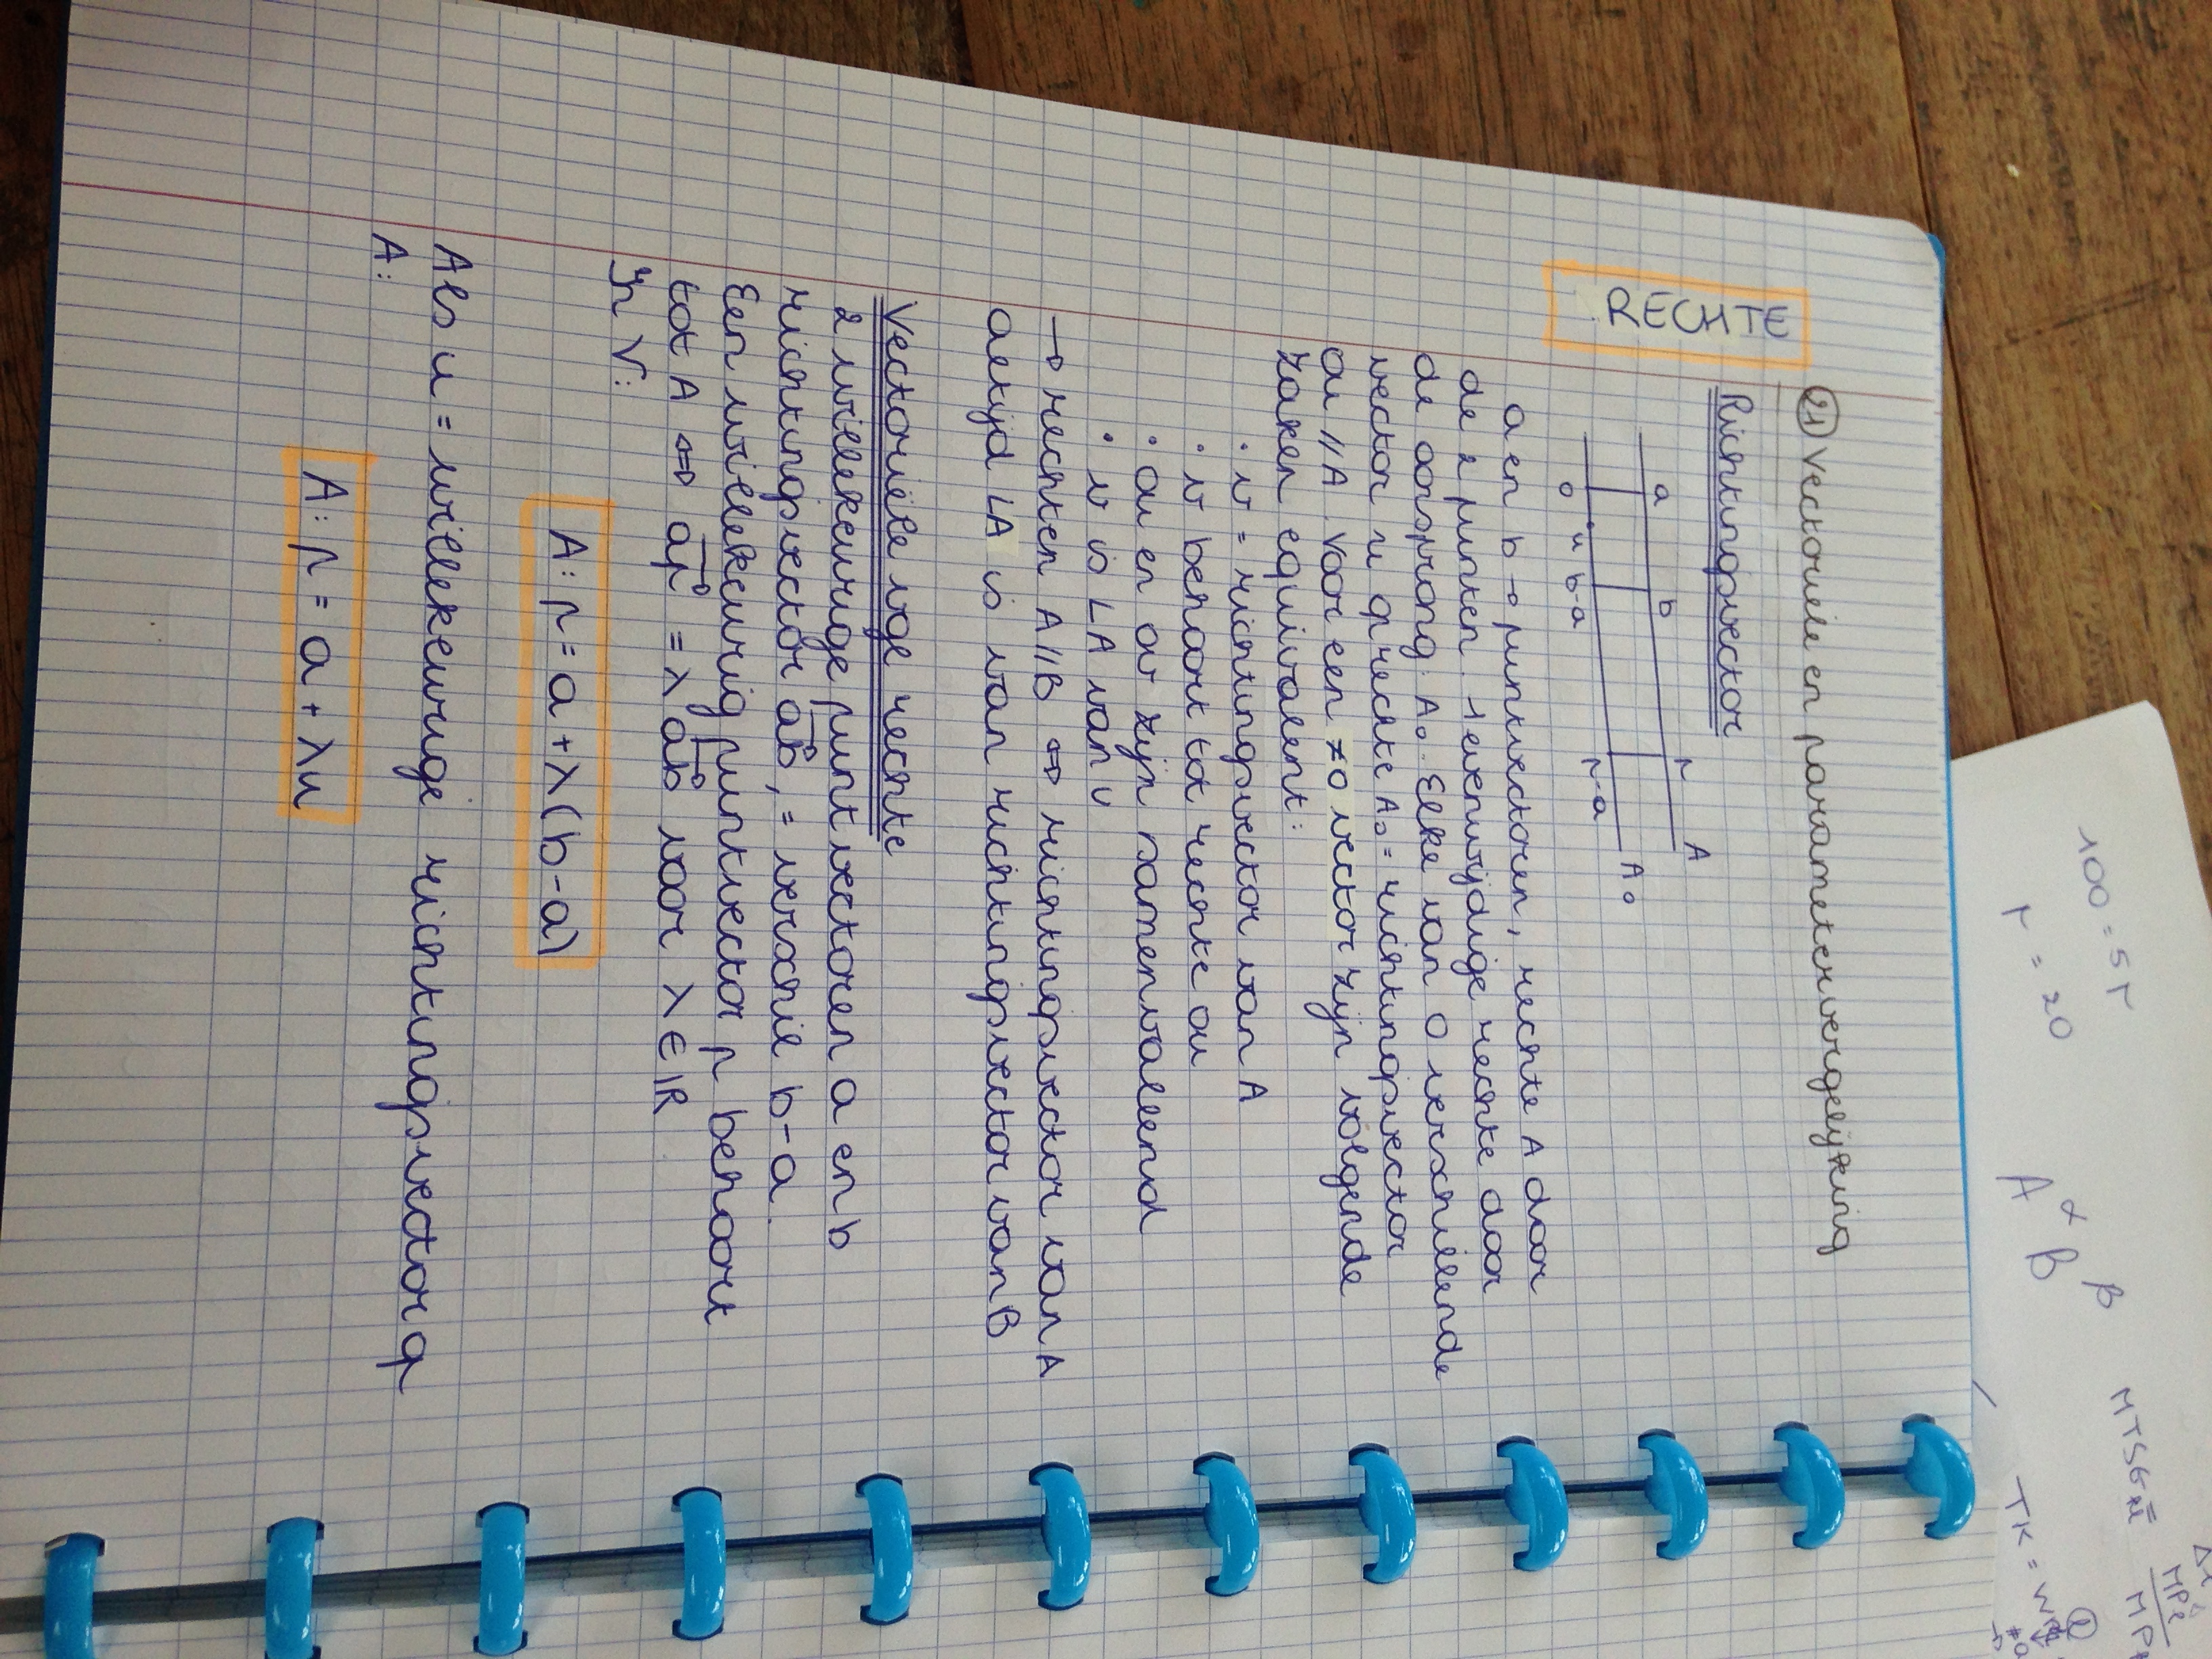 RECHTE
21 Vectoriële en parametervergelijking
Richtingsvector
a b r A
o u b-a r-a A₀
a en b → puntvectoren, rechte A door
de 2 punten. 1 evenwijdige rechte door
de oorsprong: A₀. Elke van 0 verschillende
vector u op rechte A₀ = richtingsvector
ou // A. Voor een ≠0 vector zijn volgende
zaken equivalent:
• v = richtingsvector van A
• v behoort tot rechte ou
• ou en ov zijn samenvallend
• v is LA van u
→ rechten A//B ⇔ richtingsvector van A
altijd LA is van richtingsvector van B
Vectoriële vgl rechte
2 willekeurige puntvectoren a en b
richtingsvector ab, = verschil b-a.
Een willekeurig puntvector r behoort
tot A ⇔ ar = λ ab voor λ ∈ ℝ
In V:
A: r = a + λ(b-a)
Als u = willekeurige richtingsvector q
A:
A: r = a + λu
100 = 5r
r = 20
A α B β
MTSG =
TK =